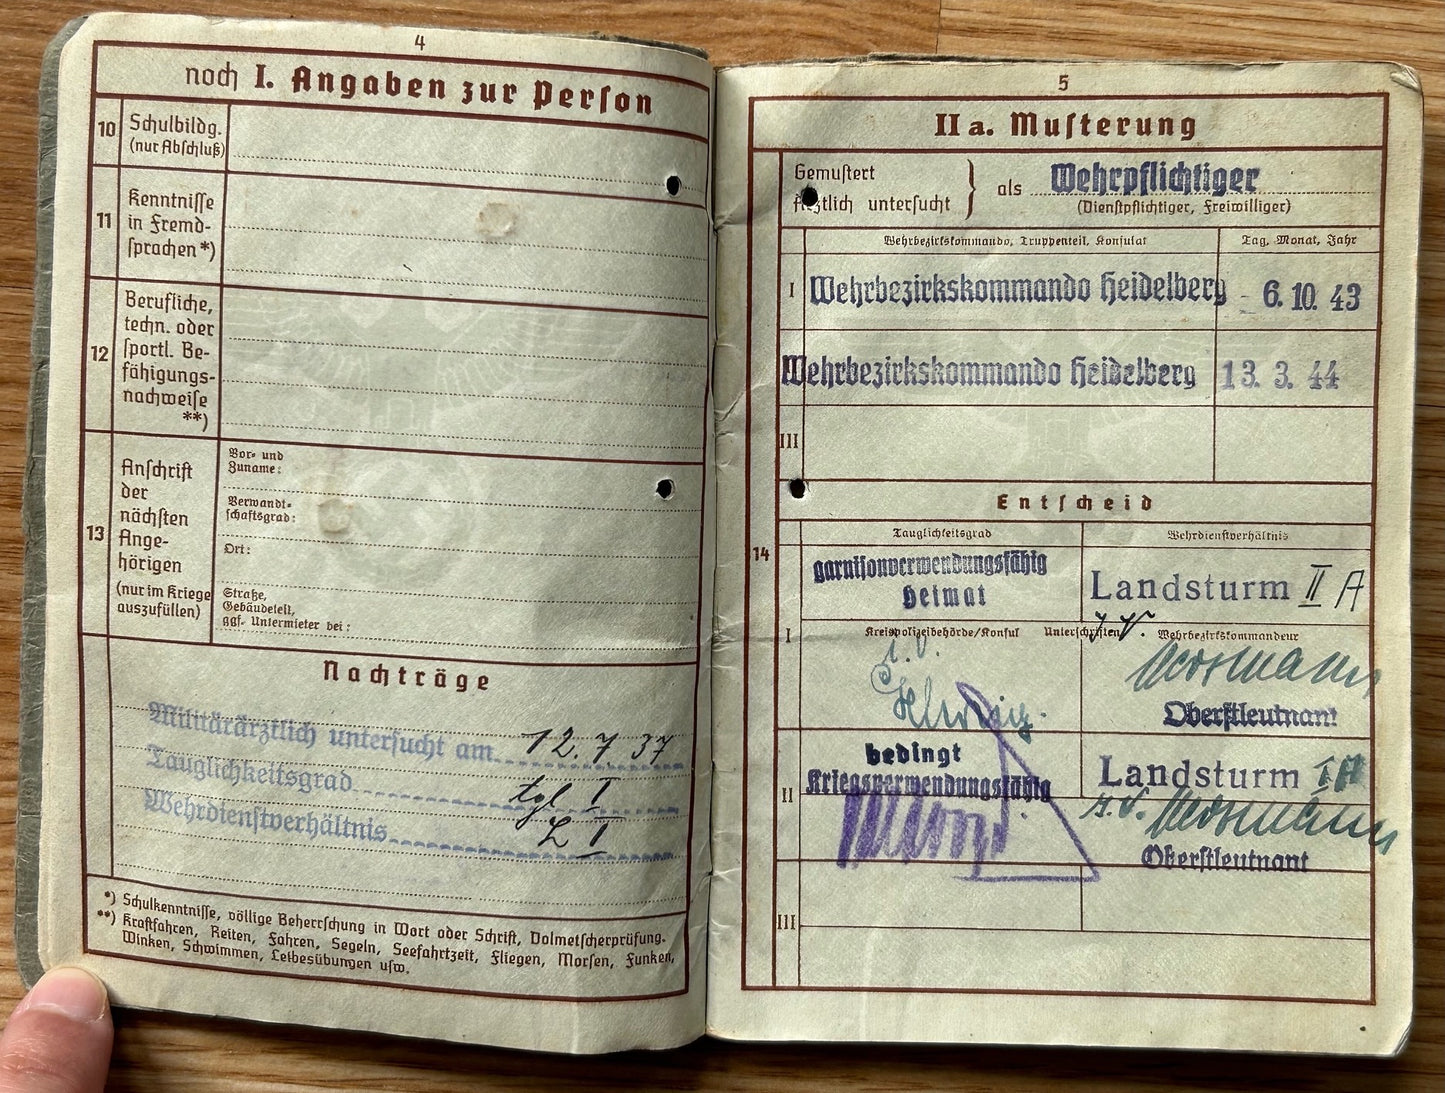 4
noch I. Angaben zur Person
10 Schulbildg.
(nur Abschluß)
11 Kenntnisse
in Fremd-
sprachen *)
12 Berufliche,
techn. oder
sportl. Be-
fähigungs-
nachweise
**)
13 Anschrift
der
nächsten
Ange-
hörigen
(nur im Kriege
auszufüllen)
Vor- und
Zuname:
Verwandt-
schaftsgrad:
Ort:
Straße,
Gebäudeteil,
ggf. Untermieter bei:
Nachträge
Militärärztlich untersucht am 12. 7. 37
Tauglichkeitsgrad tgl I
Wehrdienstverhältnis L I
*) Schulkenntnisse, völlige Beherrschung in Wort oder Schrift, Dolmetscherprüfung.
**) Kraftfahren, Reiten, Fahren, Segeln, Seefahrtzeit, Fliegen, Morsen, Funken,
Winken, Schwimmen, Leibesübungen usw.
5
II a. Musterung
Gemustert
ärztlich untersucht
als Wehrpflichtiger
(Dienstpflichtiger, Freiwilliger)
Wehrbezirkskommando, Truppenteil, Konsulat Tag, Monat, Jahr
I Wehrbezirkskommando Heidelberg - 6. 10. 43
Wehrbezirkskommando Heidelberg 13. 3. 44
III
Entscheid
14
Tauglichkeitsgrad Wehrdienstverhältnis
garnisonverwendungsfähig
Heimat
Landsturm II A
I Kreispolizeibehörde/Konsul Unterschriften Wehrbezirkskommandeur
i. V.
J. V.
Oberstleutnant
II bedingt
Kriegsverwendungsfähig
Landsturm I A
J. V.
Oberstleutnant
III